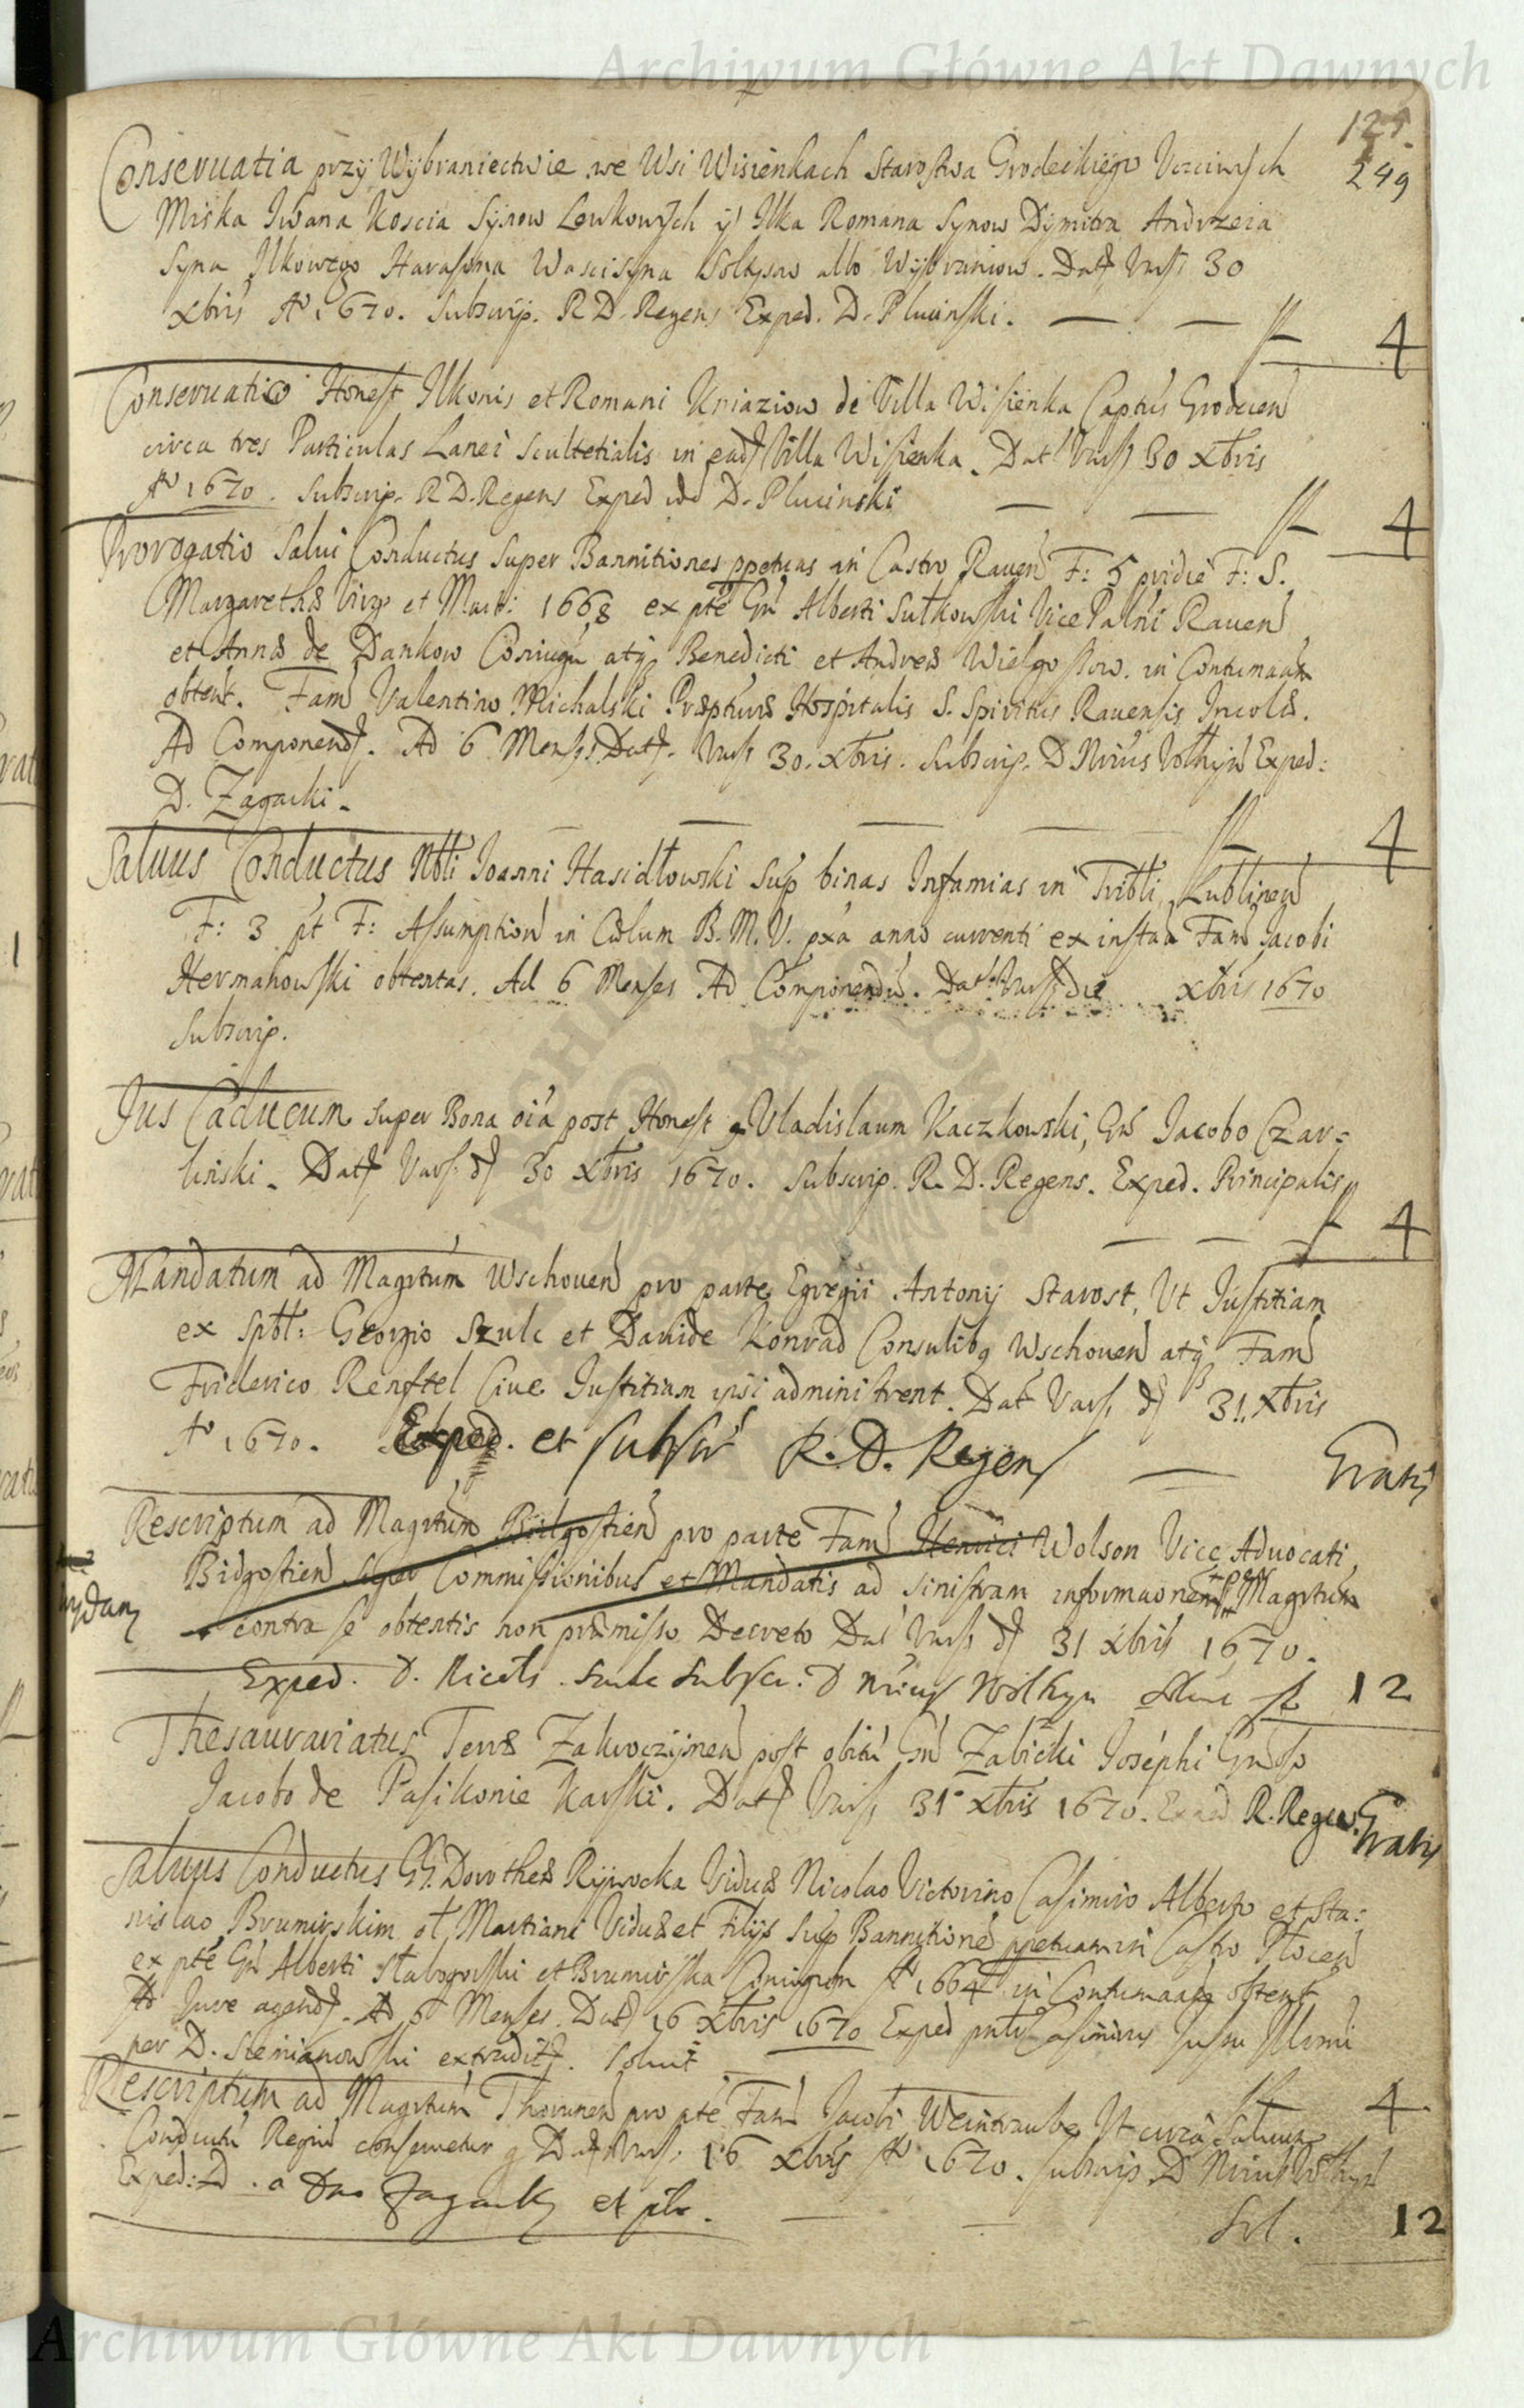 Archiwum Główne Akt Dawnych
121.
249
Conseruatia przÿ Wÿbraniectwie we Wsi Wisienkach Starostwa Grodeckiego Vczciwych
Miska Iwana Koscia Sÿnow Lewkowych ÿ Ilka Romana Synow Dÿmitra Andrzeia
Syna Ilkowego Harasyma Soltysow albo Wÿbrancow. Dat Vars 30
xbris Aº 1670. Subscrip. R D. Regens Exped. D. Plucinski.
4
Conseruatio Honest Ilkonis et Romani Kniaziow de Villa Wisienka Captus Grodecen
circa tres Particulas Lanei Scultetialis in ead Villa Wisienka. Dat Vars 30 xbris
Aº 1670. Subscrip. R D. Regens Exped D. Plucinski
4
Prorogatio Salui Conductus Super Bannitiones ppetuas in Castro Rauen F: 5 pridie F: S.
Margarethæ Virg et Mart: 1668 ex pte Gn Alberti Sulkowski Vice Palni Rauen
et Annæ de Dankow Coniugu atq Benedicti et Andreæ Wielgossow in Contumaam
obtent. Fam Valentino Michalski Præpturæ Hospitalis S. Spiritus Rauensis Incolæ.
Ad Componend. Ad 6 Menses Dat. Vars 30. xbris. Subscrip. D Nrius Volhÿn Exped:
D. Zagacki.
4
Saluus Conductus Nbli Ioanni Hasidłowski Sup binas Infamias in Tribli Lublinen
F: 3 pt F: Assumption in Cœlum B. M. V. pxa anno currenti ex instaa Fam Jacobi
Hermanowski obtentas. Ad 6 Menses Ad Componendu. Dat Vars die xbris 1670
Subscrip.
Jus Caducum super Bona oia post Honest Vladislaum Kaczkowski, Gn Jacobo Czar=
linski. Dat Vars. d 30 xbris 1670. Subscrip. R. D. Regens. Exped. Principalis
4
Mandatum ad Magrtum Wschouen pro parte Egregii Antonÿ Starost, Vt Justitiam
ex Spbl: Georgio Szulc et Dauide Konrad Consulibq Wschouen atq Fam
Friderico Renftel Ciue Justitiam ipsi administrent. Dat Vars, d 31. xbris
Aº 1670. Exped. et subscr R. D. Regens
Gratis
Rescriptum ad Magrtum Bidgostien pro parte Fam Henrici Wolson Vice Aduocati
Bidgostien super Commissionibus et Mandatis ad sinistram informaonem per Magrtum
contra se obtentis non præmisso Decreto Dat Vars d 31 xbris 1670.
Exped. D. Szulc Subscr. D Nrius Wolhyn 12
Thesaurariatus Terræ Zakroczÿmen post obitu Gn Zabicki Josephi Gnso
Jacobo de Pasikonie Karski. Dat Vars 31º xbris 1670. Exped R. Regens.
Gratis
Saluus Conductus GG. Dorotheæ Rÿwocka Viduæ Nicolao Victorino Casimiro Alberto et Sta=
nislao Brumirskim ol Martiani Viduæ et Filÿs Sup Bannitione ppetuam in Castro Plocen
ex pte Gn Alberti et Brumirska Coniugum Aº 1664 in Contumaam obtent
Ad Jure agend. Ad 6 Menses. Dat 16 xbris 1670 Exped
per D. Siemianowski extradit. Soluit
4
Rescriptum ad Magrtum Thorunen pro pte Fam Jacobi Weintraube Vt circa Saluum
Conductu Regiu conseruetur Dat Vars. 16 xbris Aº 1670. Subscrip D Nrius Volhyn
Exped: D. a Dno Zagacki et
Sol. 12
Archiwum Główne Akt Dawnych